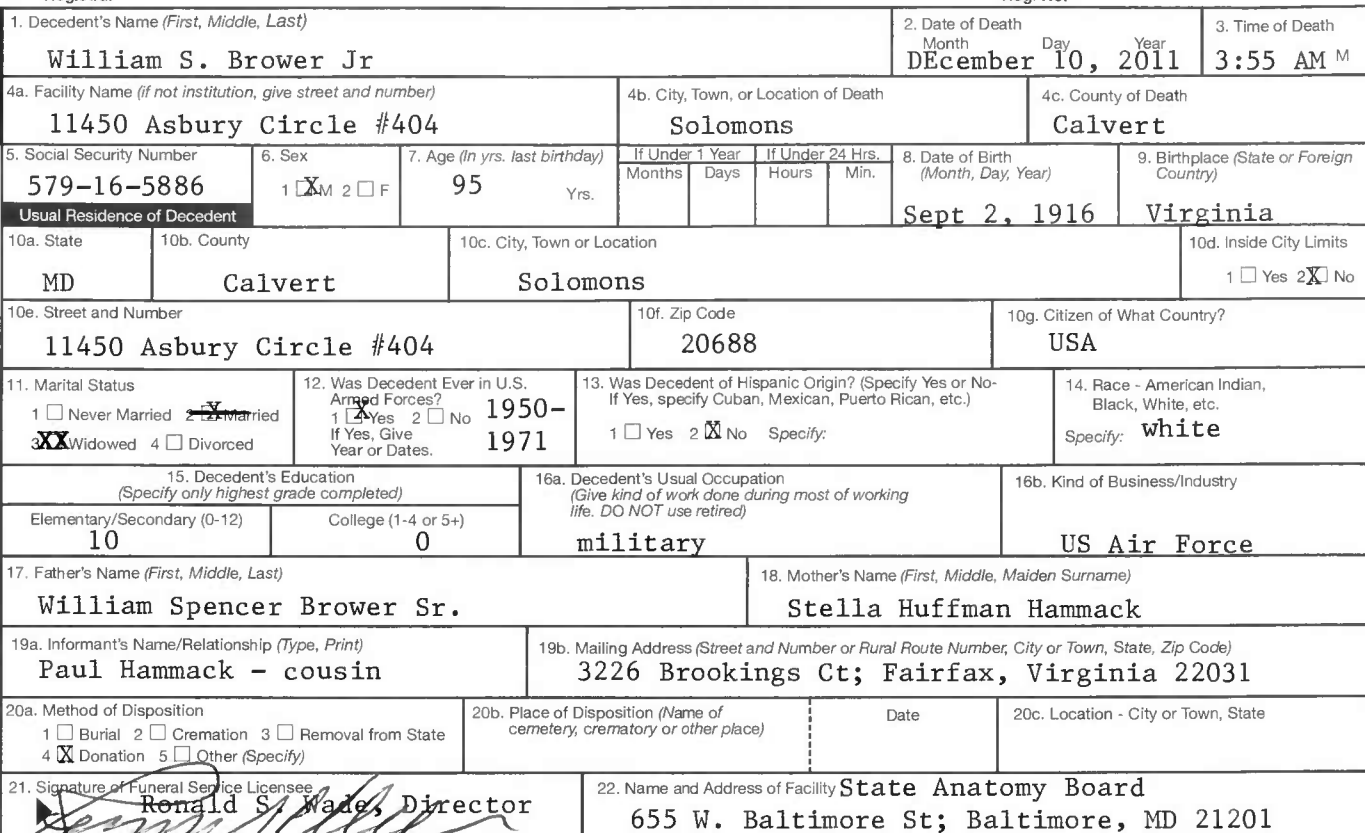 1. Decedent's Name (First, Middle, Last)
William S. Brower Jr
2. Date of Death
Month Day Year
DEcember 10, 2011
3. Time of Death
3:55 AM M
4a. Facility Name (if not institution, give street and number)
11450 Asbury Circle #404
4b. City, Town, or Location of Death
Solomons
4c. County of Death
Calvert
5. Social Security Number
579-16-5886
6. Sex
1 X M 2 ☐ F
7. Age (In yrs. last birthday)
95 Yrs.
If Under 1 Year
Months Days
If Under 24 Hrs.
Hours Min.
8. Date of Birth
(Month, Day, Year)
Sept 2, 1916
9. Birthplace (State or Foreign
Country)
Virginia
Usual Residence of Decedent
10a. State
MD
10b. County
Calvert
10c. City, Town or Location
Solomons
10d. Inside City Limits
1 ☐ Yes 2 X No
10e. Street and Number
11450 Asbury Circle #404
10f. Zip Code
20688
10g. Citizen of What Country?
USA
11. Marital Status
1 ☐ Never Married 2 X Married
3 XX Widowed 4 ☐ Divorced
12. Was Decedent Ever in U.S.
Armed Forces?
1 X Yes 2 ☐ No 1950-
If Yes, Give
Year or Dates. 1971
13. Was Decedent of Hispanic Origin? (Specify Yes or No-
If Yes, specify Cuban, Mexican, Puerto Rican, etc.)
1 ☐ Yes 2 X No Specify:
14. Race - American Indian,
Black, White, etc.
Specify: white
15. Decedent's Education
(Specify only highest grade completed)
Elementary/Secondary (0-12)
10
College (1-4 or 5+)
0
16a. Decedent's Usual Occupation
(Give kind of work done during most of working
life. DO NOT use retired)
military
16b. Kind of Business/Industry
US Air Force
17. Father's Name (First, Middle, Last)
William Spencer Brower Sr.
18. Mother's Name (First, Middle, Maiden Surname)
Stella Huffman Hammack
19a. Informant's Name/Relationship (Type, Print)
Paul Hammack - cousin
19b. Mailing Address (Street and Number or Rural Route Number, City or Town, State, Zip Code)
3226 Brookings Ct; Fairfax, Virginia 22031
20a. Method of Disposition
1 ☐ Burial 2 ☐ Cremation 3 ☐ Removal from State
4 X Donation 5 ☐ Other (Specify)
20b. Place of Disposition (Name of
cemetery, crematory or other place)
Date
20c. Location - City or Town, State
21. Signature of Funeral Service Licensee
Ronald S. Wade, Director
22. Name and Address of Facility State Anatomy Board
655 W. Baltimore St; Baltimore, MD 21201